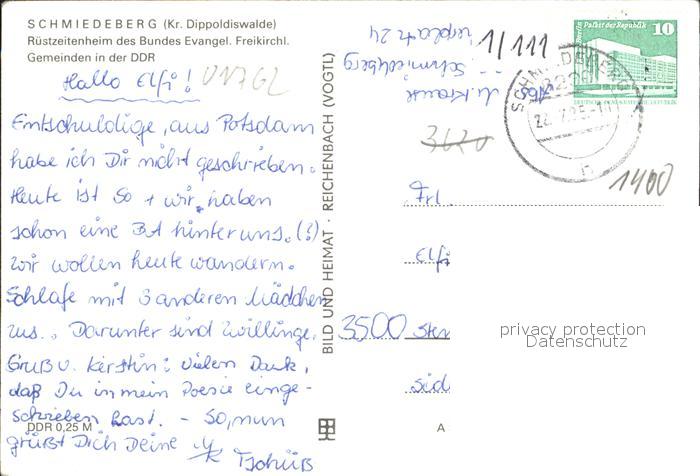 SCHMIEDEBERG (Kr. Dippoldiswalde)
Rüstzeitenheim des Bundes Evangel. Freikirchl.
Gemeinden in der DDR
Hallo Elfi!
Entschuldige, aus Potsdam
habe ich Dir nicht geschrieben.
Heute ist So + wir haben
schon eine BA hinter uns. (!)
Wir wollen heute wandern.
Schlafe mit 3 anderen Mädchen
zus.. Darunter sind Zwillinge.
Gruß v. Kerstin: vielen Dank,
daß Du in mein Poesie einge-
schrieben hast. - So, nun
grüßt Dich Deine
Tschüß
DDR 0,25 M
BILD UND HEIMAT · REICHENBACH (VOGTL)
Schmiedeberg
platz 24
1/111
3620
1400
Berlin Palast der Republik 10
DEUTSCHE DEMOKRATISCHE REPUBLIK
SCHMIEDEBERG
Frl.
Elfi
3500 Sten
Süd
A
privacy protection
Datenschutz